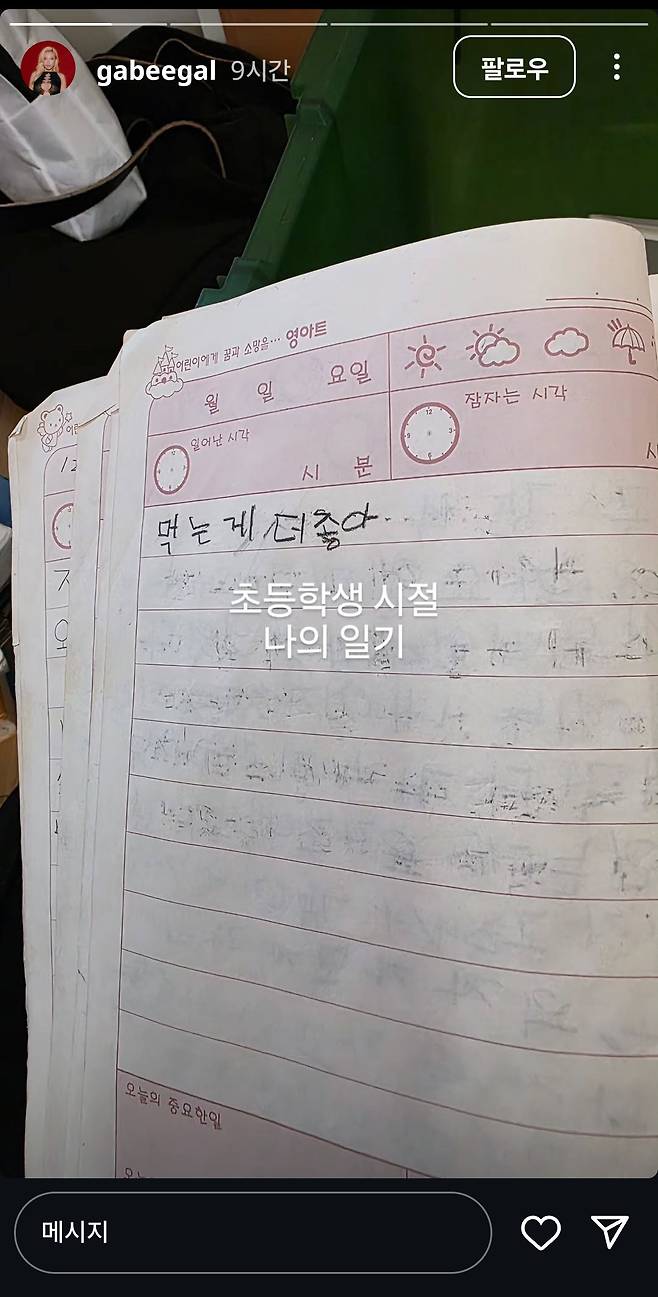 gabeegal 9시간 팔로우
어린이에게 꿈과 소망을… 영아트
월 일 요일
일어난 시각 잠자는 시각
시 분
12
먹는게 더좋아
초등학생 시절
나의 일기
오늘의 중요한일
메시지